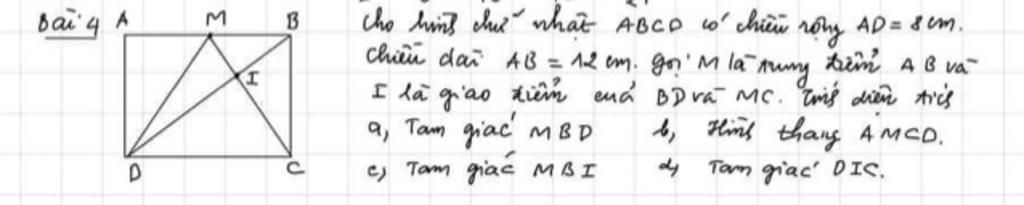 Bài 4
A M B
I
D C
Cho hình chữ nhật ABCD có chiều rộng AD = 8 cm.
Chiều dài AB = 12 cm. gọi M là trung điểm AB và
I là giao điểm của BD và MC. Tính diện tích
a, Tam giác MBD b, Hình thang AMCD.
c, Tam giác MBI d, Tam giác DIC.